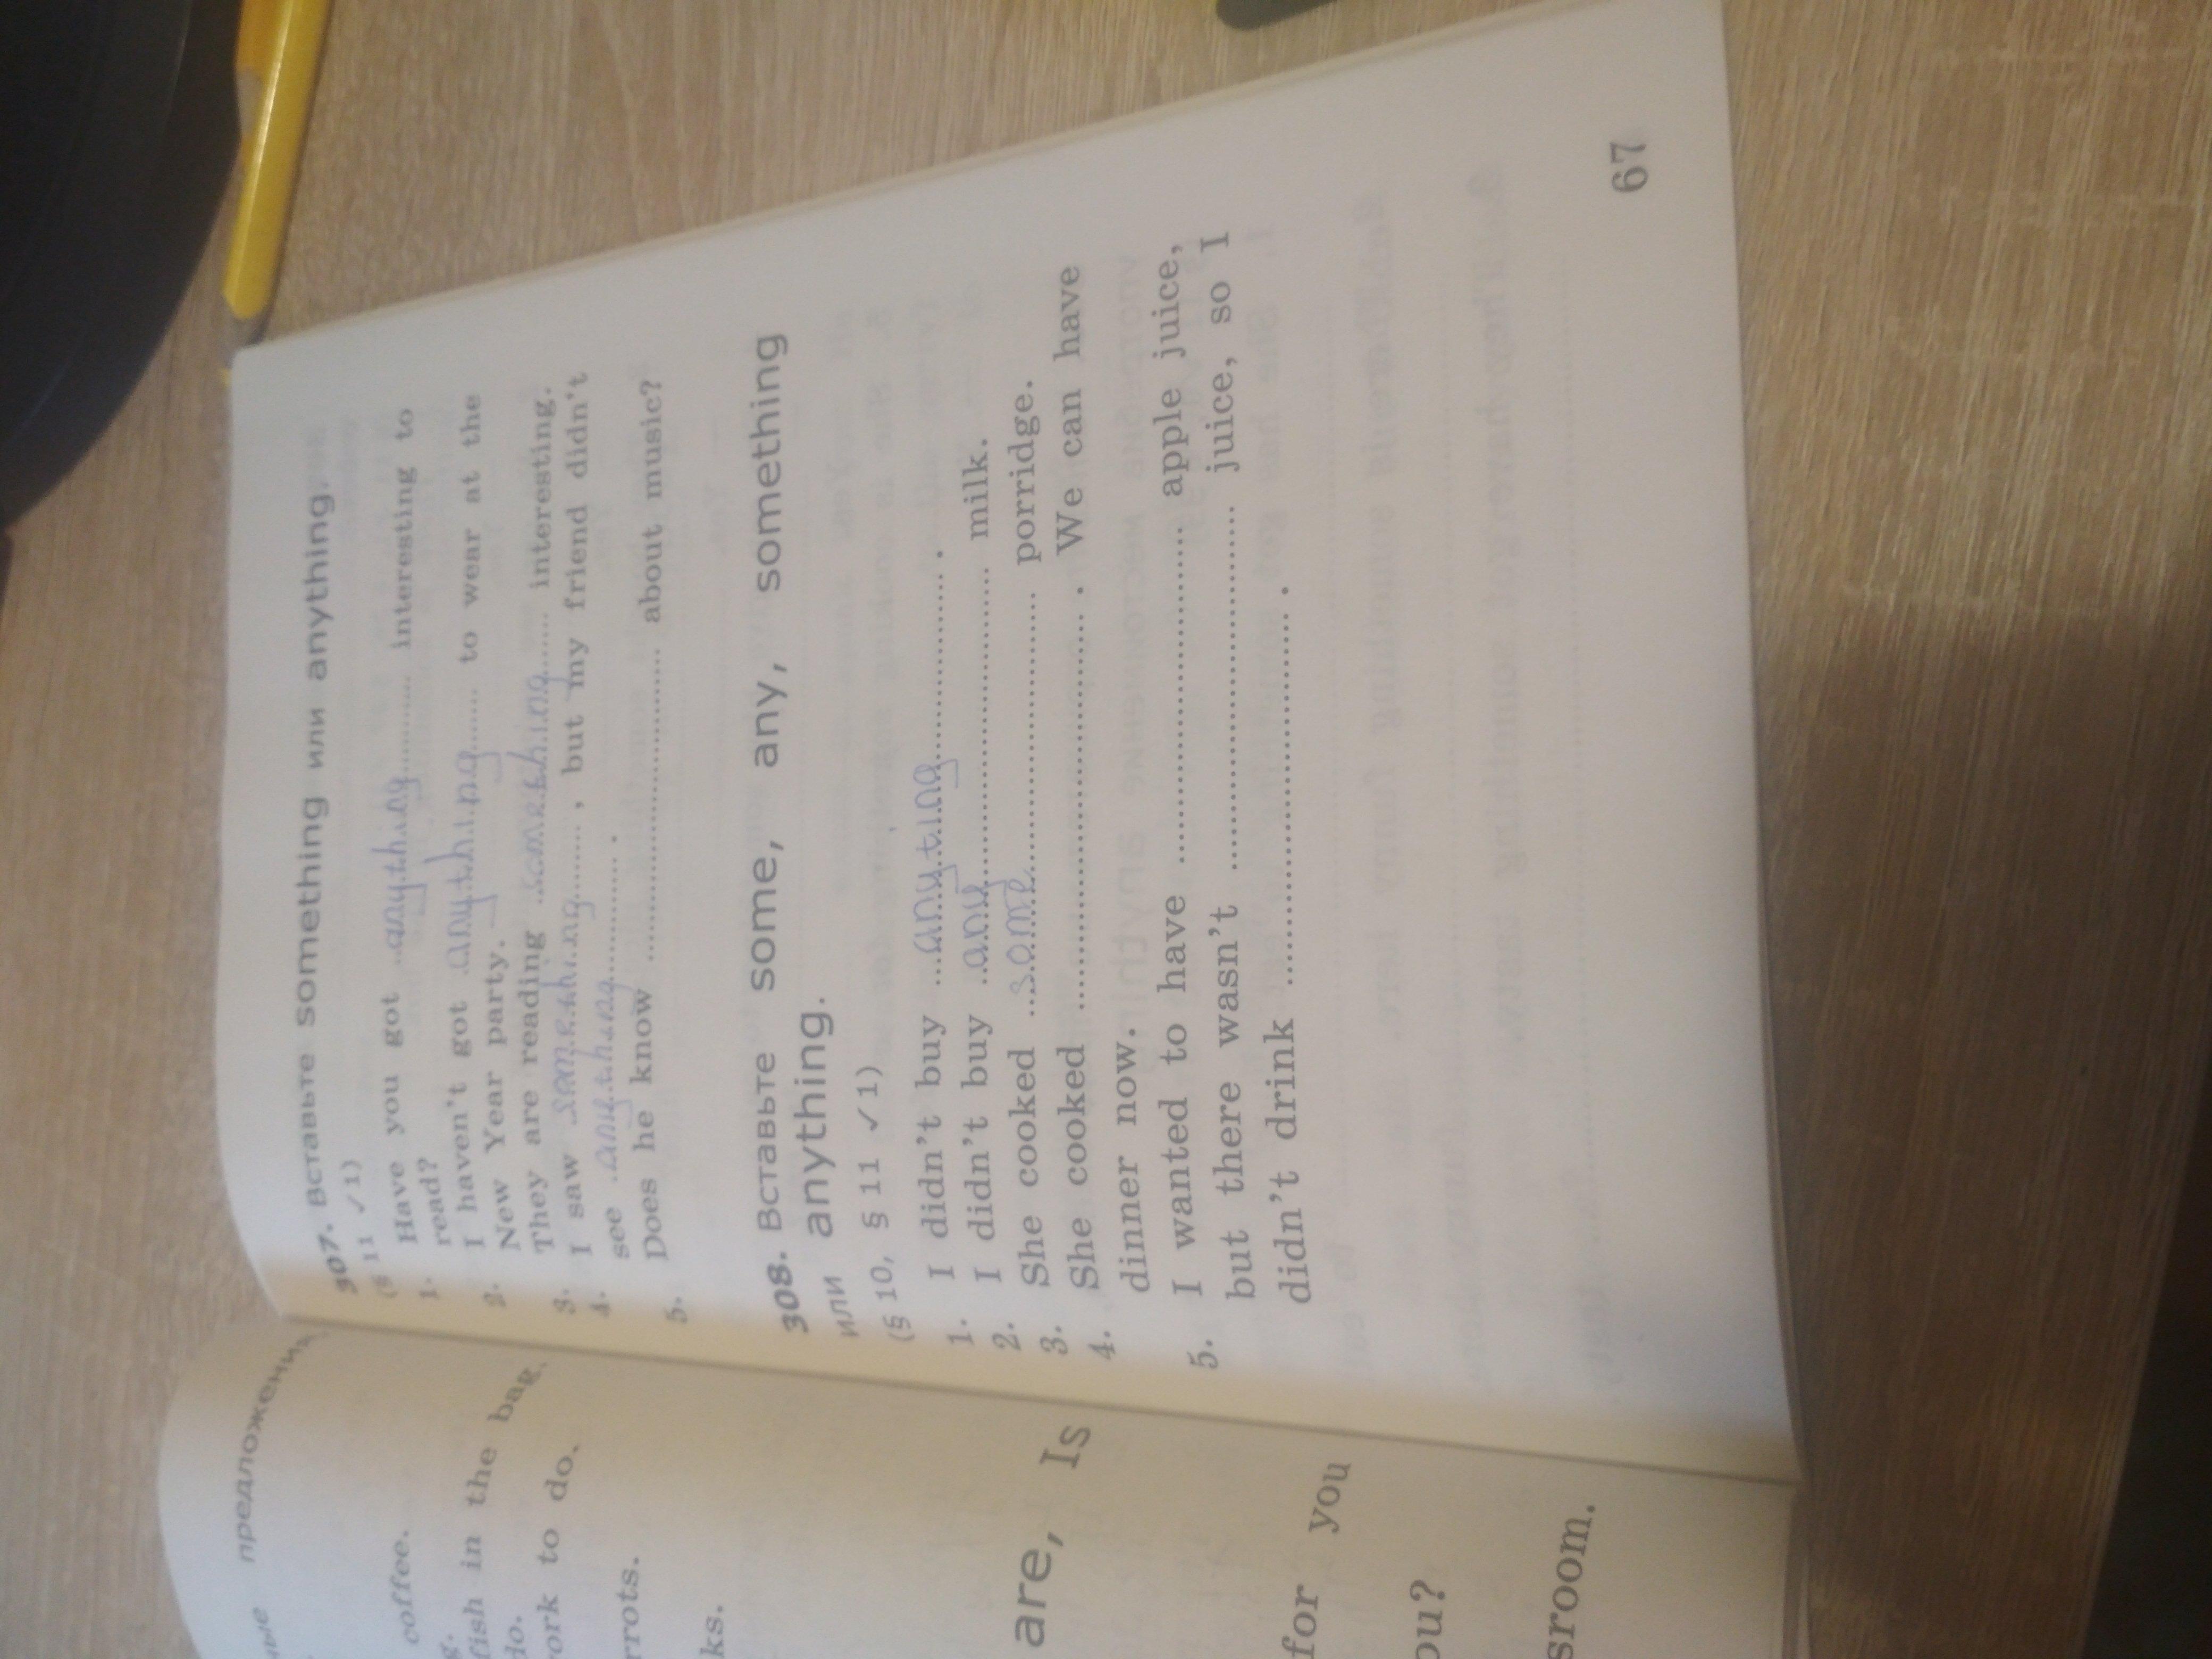 предложения
coffee.
fish in the bag.
do.
ork to do.
rrots.
ks.
are, Is
for you
ou?
sroom.
307. Вставьте something или anything.
(§ 11 ✓1)
1. Have you got anything interesting to
read?
2. I haven't got anything to wear at the
New Year party.
3. They are reading something interesting.
4. I saw something, but my friend didn't
see anything.
5. Does he know .......... about music?
308. Вставьте some, any, something
или anything.
(§ 10, § 11 ✓1)
1. I didn't buy anyting.
2. I didn't buy any milk.
3. She cooked some porridge.
4. She cooked .......... . We can have
dinner now.
5. I wanted to have .......... apple juice,
but there wasn't .......... juice, so I
didn't drink .......... .
67